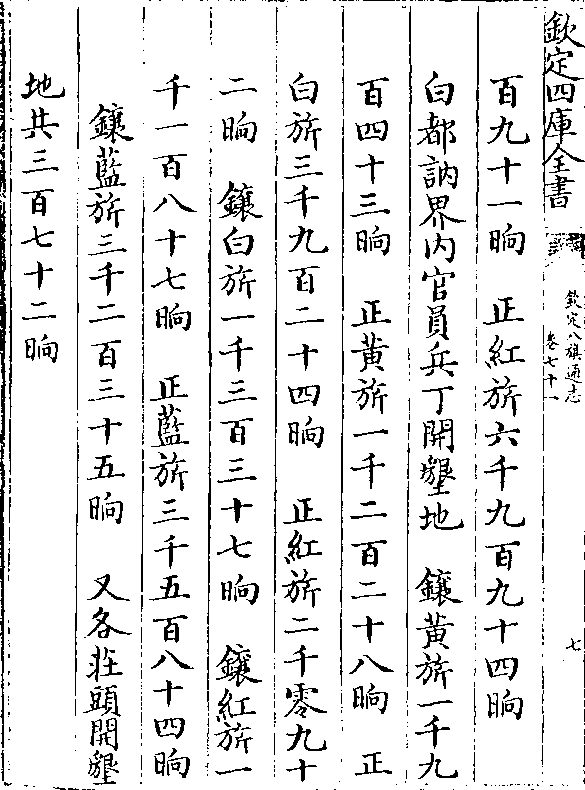 欽定四庫全書
欽定八旗通志
卷七十一
七
百九十一晌　正紅旂六千九百九十四晌
白都訥界内官員兵丁開墾地　鑲黄旂一千九
百四十三晌　正黄旂一千二百二十八晌　正
白旂三千九百二十四晌　正紅旂二千零九十
二晌　鑲白旂一千三百三十七晌　鑲紅旂一
千一百八十七晌　正藍旂三千五百八十四晌
鑲藍旂三千二百三十五晌　又各莊頭開墾
地共三百七十二晌